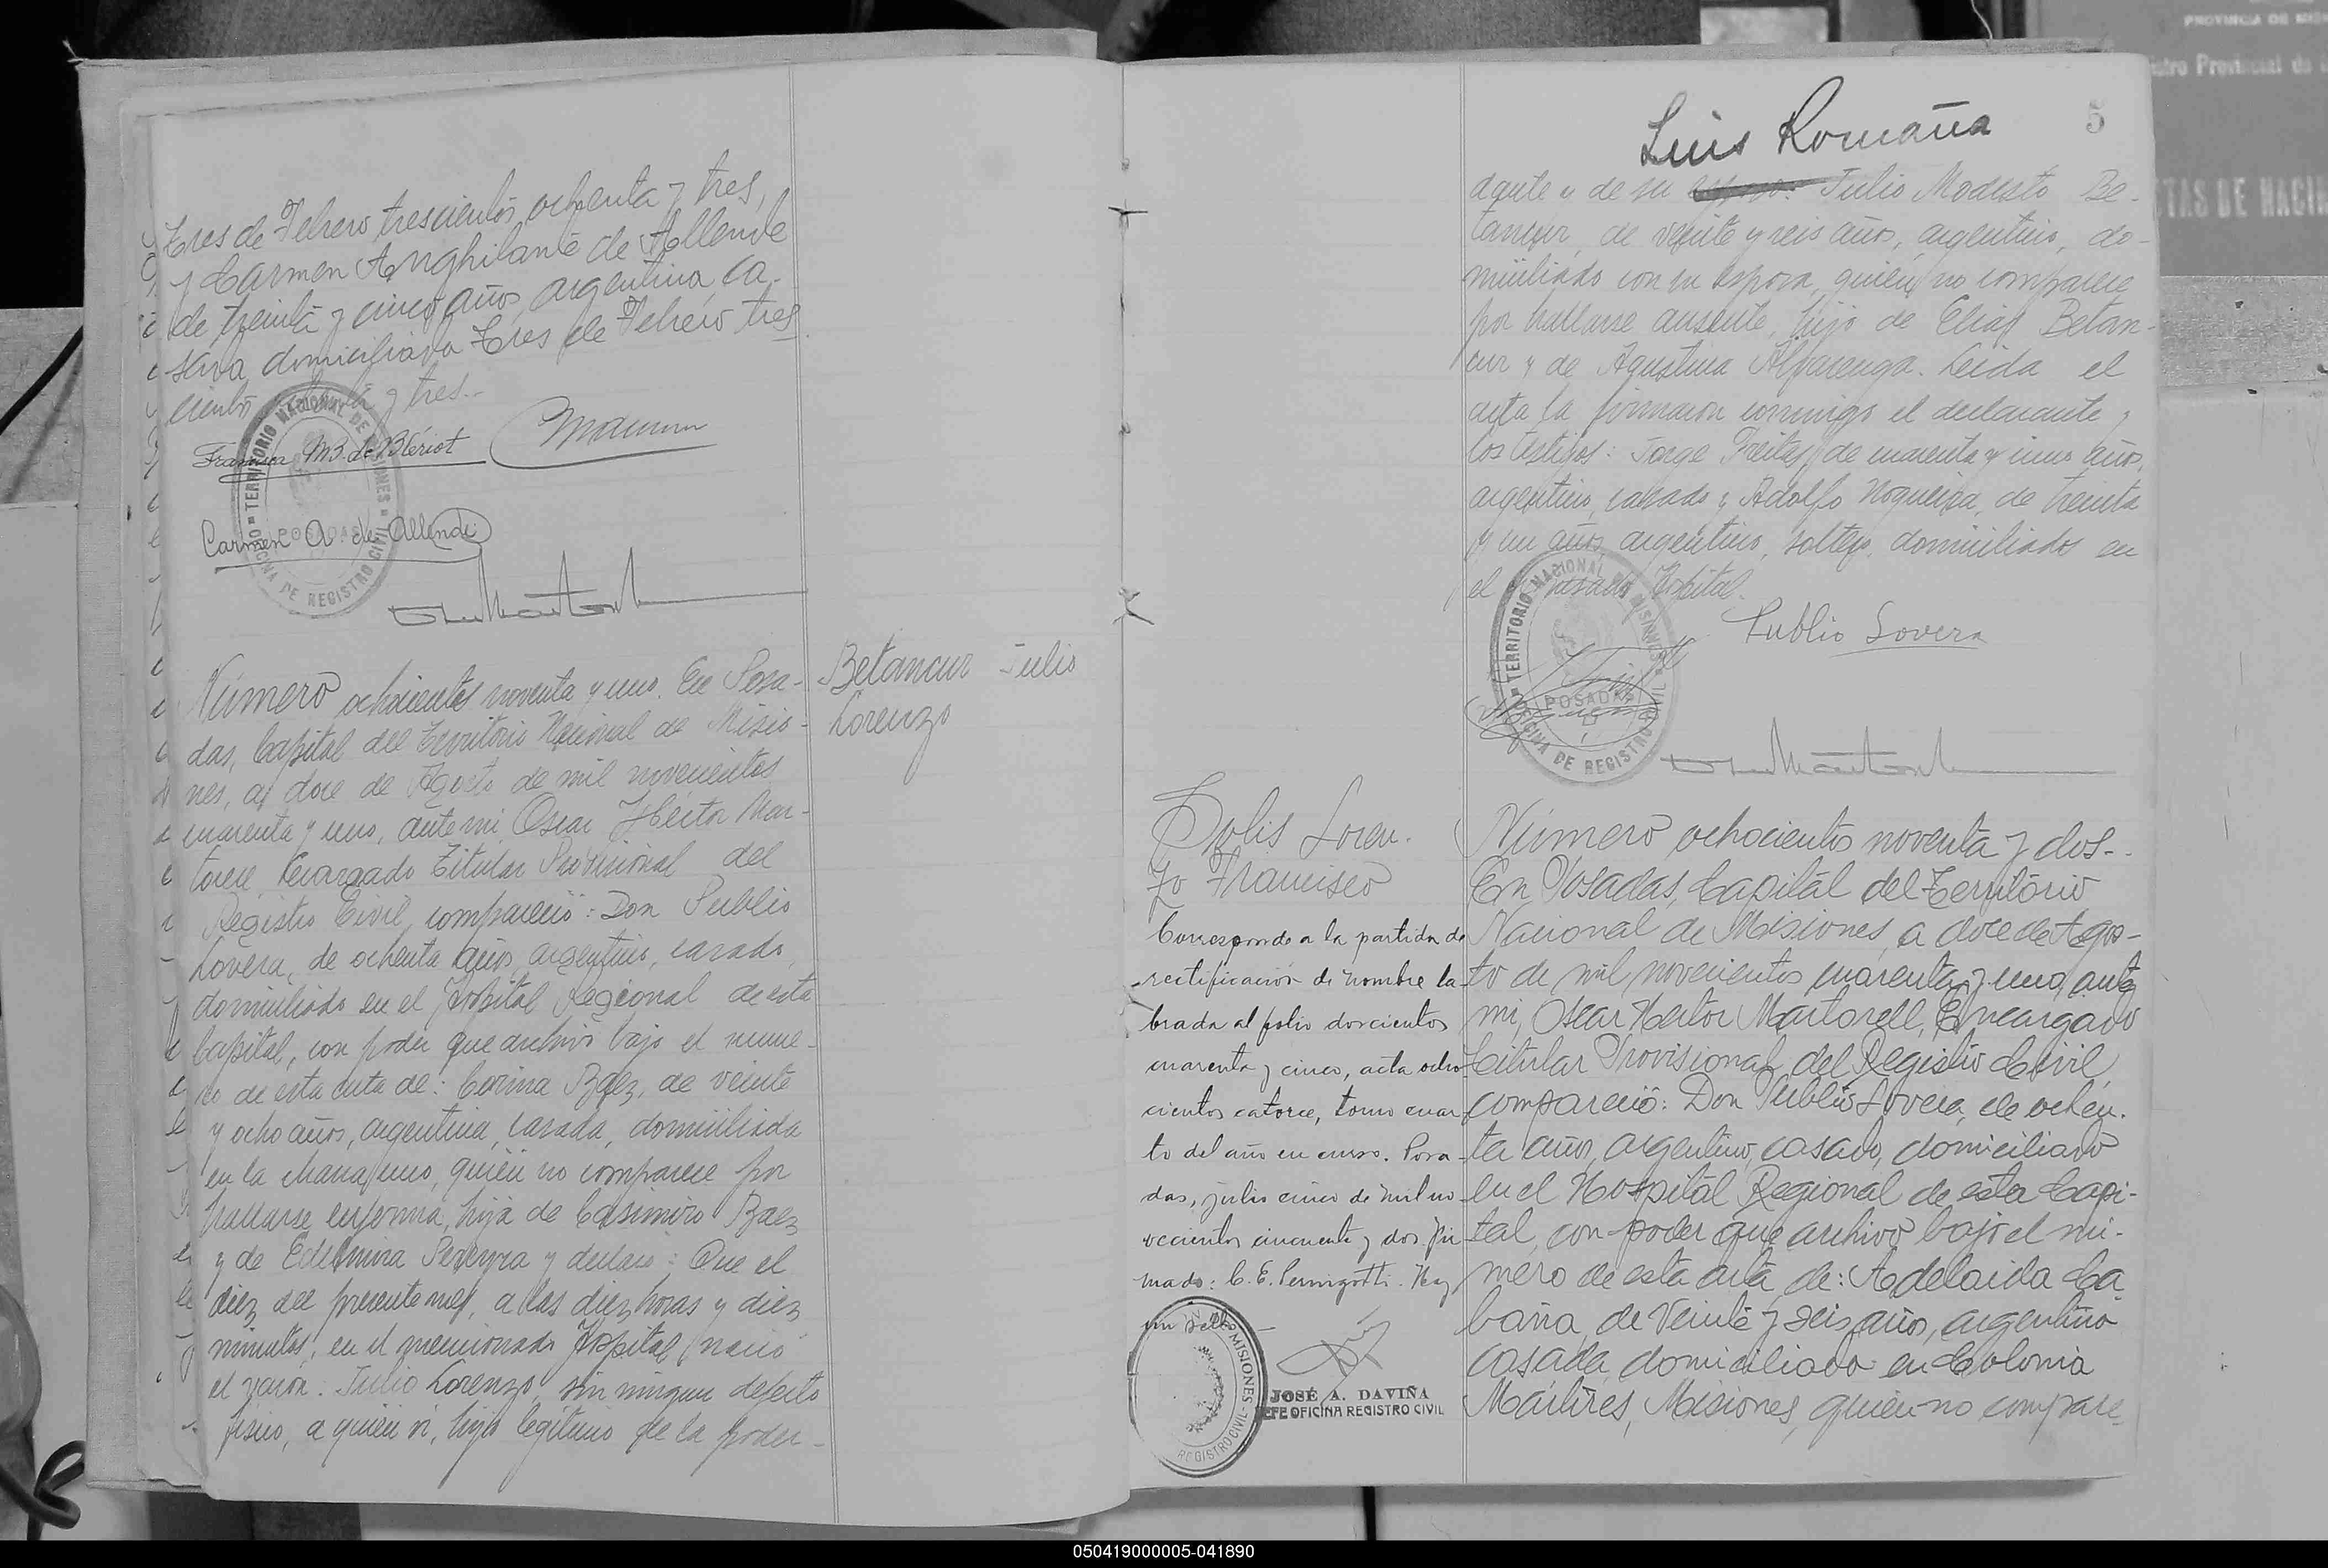 Tres de Febrero trescientos ochenta y tres,
y Carmen Anghilante de Allende
de treinta y cinco años, argentina, ca-
sada, domiciliada Tres de Febrero tres
cientos y tres.-
M B. de Blériot
Carmen A. de Allende
TERRITORIO NACIONAL DE MISIONES
POSADAS
OFICINA DE REGISTRO CIVIL
Número ochocientos noventa y uno. En Posa-
das, Capital del Territorio Nacional de Misio-
nes, a doce de Agosto de mil novecientos
cuarenta y uno, ante mi Oscar Héctor Mar-
torell, Encargado Titular Provisional del
Registro Civil, compareció: Don Publio
Lovera, de ochenta años, argentino, casado,
domiciliado en el Hospital Regional de esta
Capital, con poder que archivo bajo el núme-
ro de esta acta de: Corina Baez, de veinte
y ocho años, argentina, casada, domiciliada
en la uno, quién no comparece por
hallarse enferma, hija de Casimiro Baez
y de Edelmira Pereyra y declaró: Que el
diez del presente mes, a las diez horas y diez
minutos, en el mencionado Hospital, nació
el varón: Julio Lorenzo, sin ningun defecto
físico, a quién ví, hijo legítimo de la poder-
Betancur Julio
Lorenzo
Luis Romaña
5
dante y de su Julio Modesto Be-
tancur, de veinte y seis años, argentino, do-
miciliado con su esposa, quién no comparece
por hallarse ausente, hijo de Elias Betan-
cur y de Agustina Alfarenga. Leida el
acta la firmaron conmigo el declarante y
los testigos: Jorge Freitas, de cuarenta y cinco años,
argentino, casado y Adolfo Nogueira, de treinta
y un años, argentino, soltero, domiciliados en
el Hospital.
Publio Lovera
TERRITORIO NACIONAL DE MISIONES
POSADAS
OFICINA DE REGISTRO CIVIL
Solis Loren-
zo Francisco
Corresponde a la partida de
rectificación de nombre la-
brada al folio doscientos
cuarenta y cinco, acta ocho-
cientos catorce, tomo cuar-
to del año en curso. Posa-
das, julio cinco de mil no-
vecientos cincuenta y dos. Fir-
mado: C. E. Pernigotti. Hay
un sello
MISIONES
REGISTRO CIVIL
JOSÉ A. DAVIÑA
JEFE OFICINA REGISTRO CIVIL
Número ochocientos noventa y dos.-
En Posadas, Capital del Territorio
Nacional de Misiones, a doce de Agos-
to de mil novecientos cuarenta y uno, ante
mi, Oscar Hector Martorell, Encargado
Titular Provisional del Registro Civil,
compareció: Don Publio Lovera, de ochen-
ta años, argentino, casado, domiciliado
en el Hospital Regional de esta Capi-
tal, con poder que archivo bajo el nú-
mero de esta acta, de: Adelaida Ca-
baña, de veinte y seis años, argentina
casada, domiciliada en Colonia
Mártires, Misiones, quién no compare-
PROVINCIA DE MIS
stro Provincial de
TAS DE NACIM
050419000005-041890